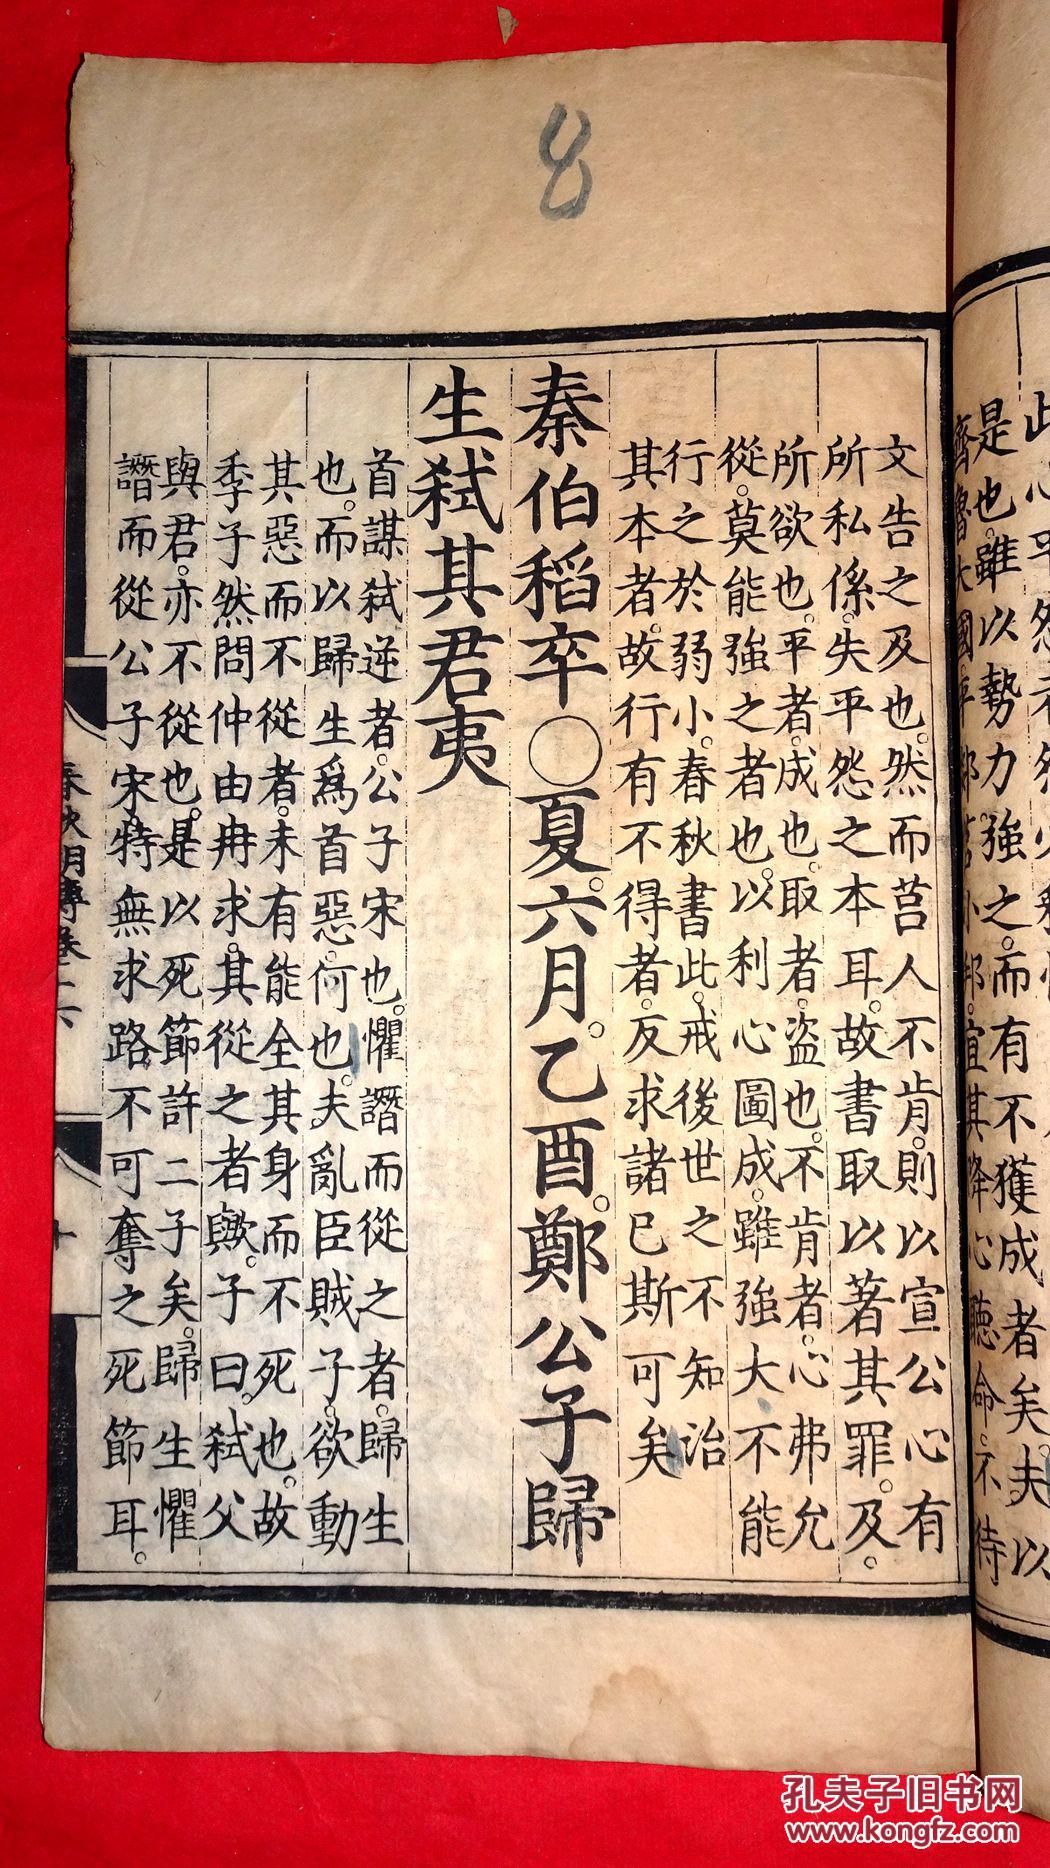 8
文告之及也。然而莒人不肯。則以宣公心有
所私係。失平怨之本耳。故書取以著其罪。及。
所欲也。平者。成也。取者。盗也。不肯者。心弗允
從。莫能強之者也。以利心圖成。雖強大不能
行之於弱小。春秋書此。戒後世之不知治
其本者。故行有不得者。反求諸已斯可矣
秦伯稻卒○夏。六月。乙酉。鄭公子歸
生弑其君夷
首謀弑逆者。公子宋也。懼譖而從之者。歸生
也。而以歸生爲首惡。何也。夫亂臣賊子。欲動
其惡而不從者。未有能全其身而不死也。故
季子然問仲由冉求。其從之者歟。子曰。弑父
與君。亦不從也。是以死節許二子矣。歸生懼
譖而從公子宋。特無求路不可奪之死節耳。
是也。雖以勢力強之。而有不獲成者矣。夫以
孔夫子旧书网
www.kongfz.com